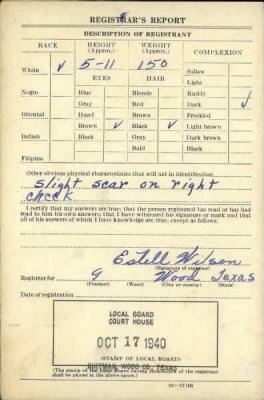 REGISTRAR'S REPORT
DESCRIPTION OF REGISTRANT
RACE HEIGHT (Approx.) WEIGHT (Approx.) COMPLEXION
White ✓ 5-11 150 Sallow
EYES HAIR Light
Negro Blue Blonde Ruddy
Gray Red Dark ✓
Oriental Hazel Brown Freckled
Brown ✓ Black ✓ Light brown
Indian Black Gray Dark brown
Bald Black
Filipino
Other obvious physical characteristics that will aid in identification
Slight scar on right
cheek
I certify that my answers are true; that the person registered has read or has had
read to him his own answers; that I have witnessed his signature or mark and that
all of his answers of which I have knowledge are true, except as follows:
Estell Wilson
(Signature of registrar)
Registrar for 9 Wood Texas
(Precinct) (Ward) (City or County) (State)
Date of registration
LOCAL BOARD
COURT HOUSE
OCT 17 1940
(STAMP OF LOCAL BOARD)
QUITMAN, WOOD CO. TEXAS
(The stamp of the Local Board having jurisdiction of the registrant
shall be placed in the above space.)
16—17105